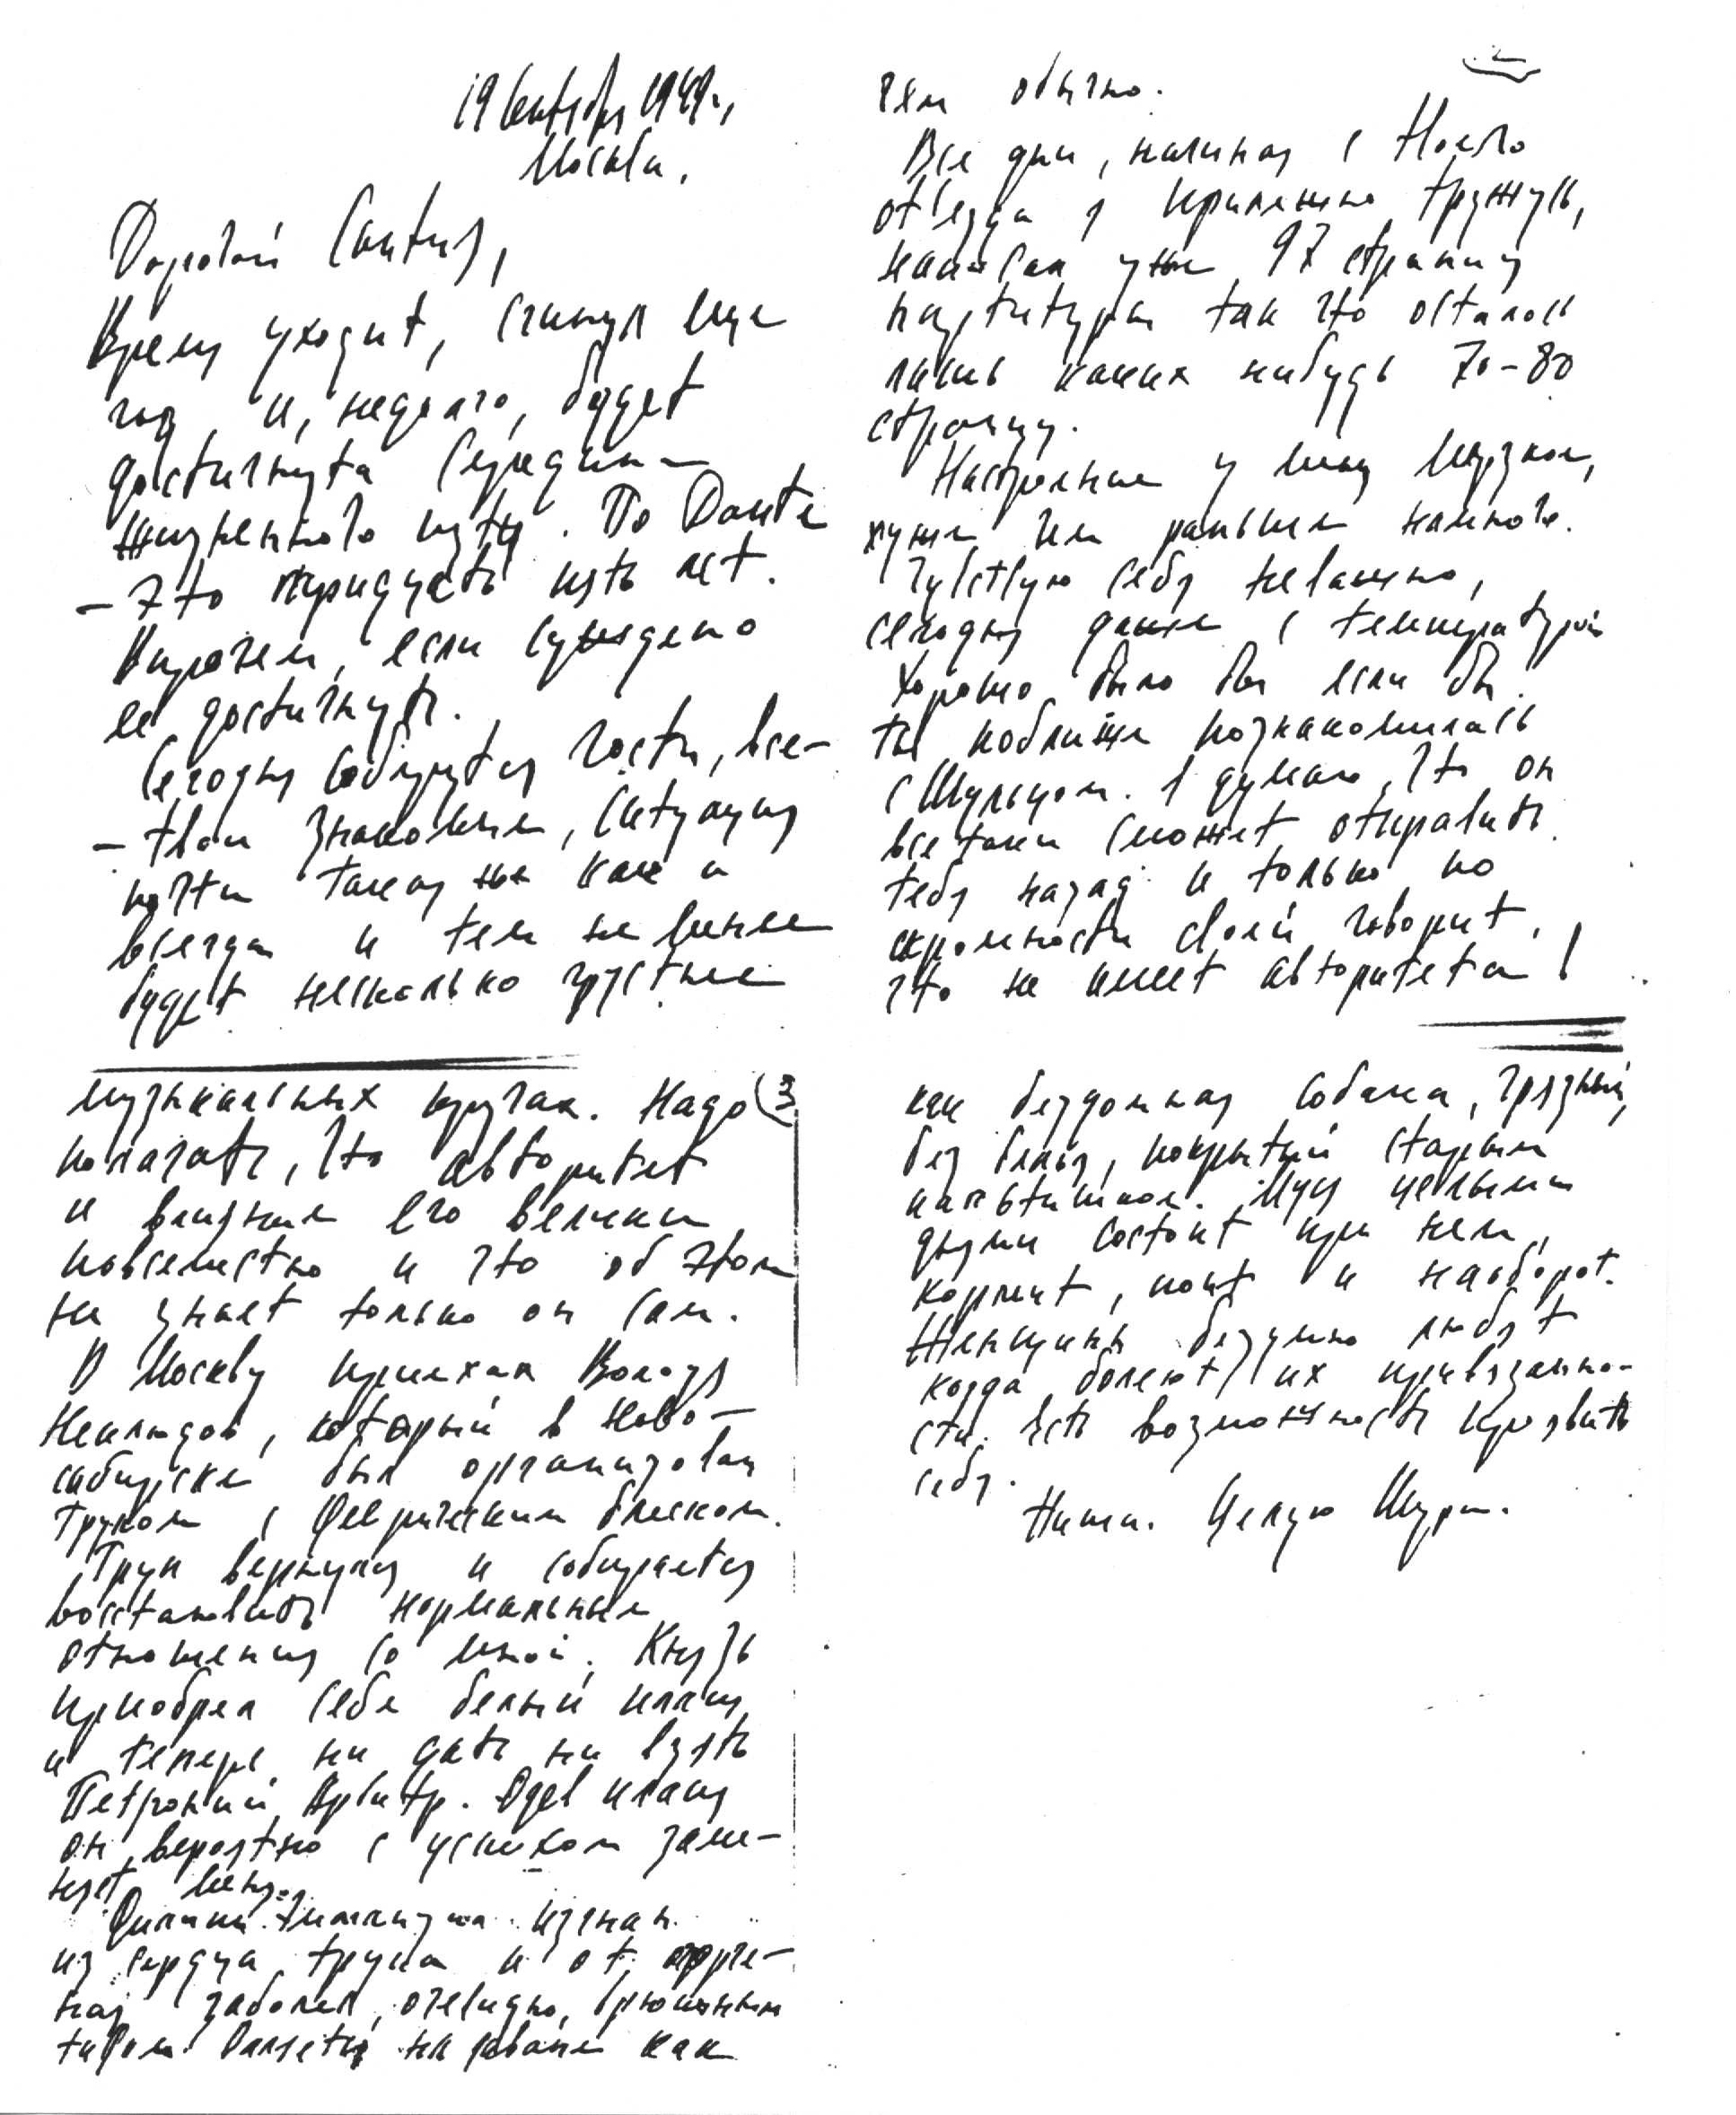 19 сентября 1949 г.,
Москва.
Дорогой
Время уходит, сгинул еще
год и, недолго, будет
достигнута середина
жизненного пути. По Dante
– это тридцать пять лет.
Впрочем, если суждено
ее достигнуть.
Сегодня соберутся гости, все–
– твои знакомые, ситуация
почти такая же как и
всегда и тем не менее
будет несколько грустнее
2
чем обычно.
Все дни, начиная с
отъезда я прилежно тружусь,
написал уже 97 страниц
партитуры так что осталось
лишь каких нибудь 70–80
страниц.
Настроение у меня мерзкое,
хуже чем раньше намного.
Чувствую себя неважно,
сегодня даже с температурой
Хорошо было бы если бы
ты поближе познакомилась
с Шульцом. Я думаю, что он
все таки сможет отправить
тебя назад и только по
скромности своей говорит,
что не имеет авторитета в
3
музыкальных кругах. Надо
полагать, что авторитет
и влияние его велики
повсеместно и что об этом
не знает только он сам.
В Москву приехал Володя
Неклюдов, который в Ново–
сибирске был организован
Труком с феерическим блеском.
Трук вернулся и собирается
восстановить нормальные
отношения со мной. Князь
приобрел себе белый плащ
и теперь ни дать ни взять
Петроний Арбитр. Одев плащ
он, вероятно с успехом заме–
нит меня.
изгнан
из сердца Трука и от огорче–
ния заболел, очевидно, брюшным
тифом. Валяется на диване как
как бездомная собака, грязный,
без белья, покрытый старым
пальтишком. Муся целыми
днями состоит при нем,
кормит, поит и наоборот.
Женщины безумно любят
когда болеют их привязанно–
сти. Есть возможность проявить
себя.
Пиши. Целую Шура.